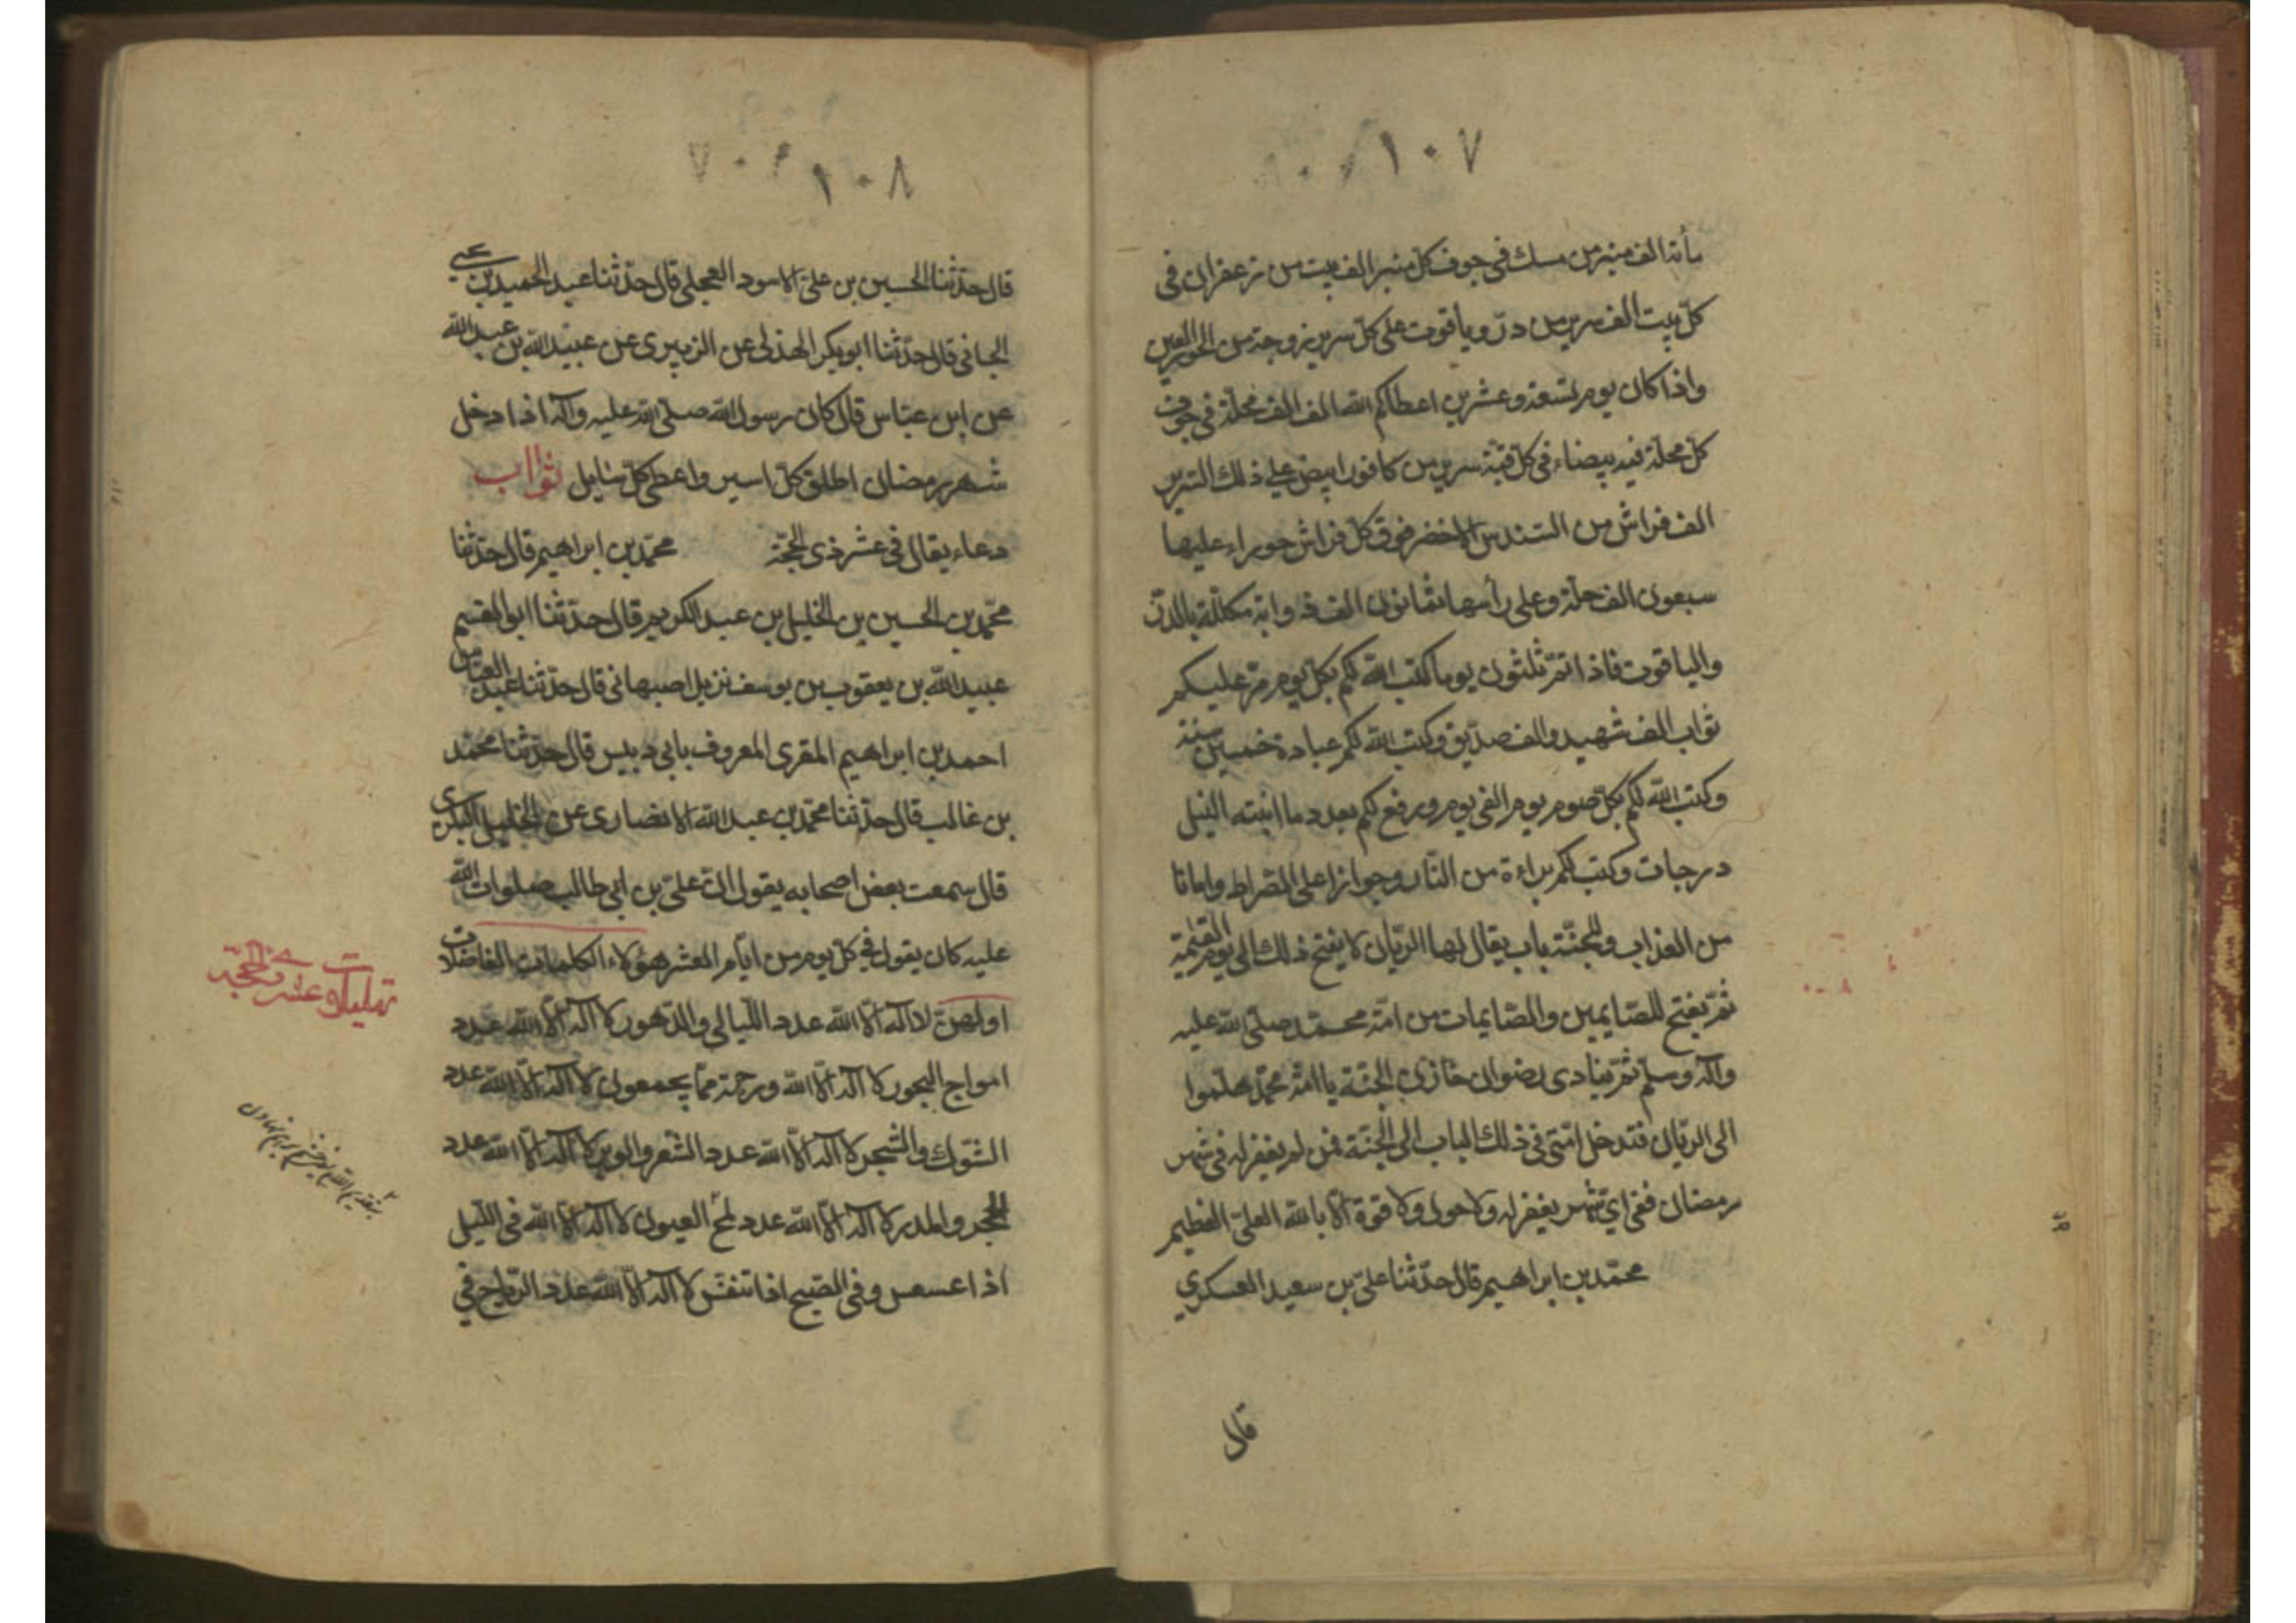 ١٠٧
مأئة الف منبر من مسك في جوف كل منبر الف بيت من زعفران في
كل بيت الف سرير من درّ وياقوت على كل سرير زوجة من الحور العين
واذا كان يوم تسعة وعشرين اعطاكم الله الف الف محلة في جوف
كل محلة قبة بيضاء في كل قبّة سرير من كافور ابيض على ذلك السّرير
الف فراش من السّندس الاخضر فوق كل فراش حوراء عليها
سبعون الف حلة وعلى رأسها ثمانون الف ذوابة مكللة بالدّر
والياقوت فاذا تمّ ثلثون يوما كتب الله لكم بكل يوم مرّ عليكم
ثواب الف شهيد والف صدّيق وكتب الله لكم عبادة خمسين سنة
وكتب الله لكم بكل صوم يوم الفي يوم ورفع لكم بعدد ما انبته النيل
درجات وكتب لكم براءة من النّار وجوازا على الصّراط وامانا
من العذاب وللجنّة باب يقال لها الريّان لا يفتح ذلك الى يوم القيٰمة
ثمّ يفتح للصّايمين والصّايمات من امّة محمّد صلّى الله عليه
وآله وسلم ثمّ ينادى رضوان خازن الجنّة يا امّة محمّد هلمّوا
الى الريّان فتدخل امّتى في ذلك الباب الى الجنّة فمن لم يغفر له في شهر
رمضان ففى اىّ شهر يغفر له ولا حول ولا قوّة الّا بالله العلىّ العظيم
محمّد بن ابراهيم قال حدّثنا علىّ بن سعيد العسكري
قال
١٠٨
قال حدّثنا الحسين بن علىّ الاسود العجلى قال حدّثنا عبد الحميد بن يحيى
الحمانى قال حدّثنا ابو بكر الهذلى عن الزهيرى عن عبيد الله بن عبد الله
عن ابن عبّاس قال كان رسول الله صلّى الله عليه وآله اذا دخل
شهر رمضان اطلق كل اسير واعطى كل سايل ثواب
دعاء يقال في عشر ذى الحجّة محمّد بن ابراهيم قال حدّثنا
محمّد بن الحسين بن الخليل بن عبد الكريم قال حدّثنا ابو القسم
عبيد الله بن يعقوب بن يوسف نزيل اصبهانى قال حدّثنا عبد العبّاس
احمد بن ابراهيم المقرى المعروف بابى دبيس قال حدّثنا محمّد
بن غالب قال حدّثنا محمّد بن عبد الله الانصارى عن الخليل البكرى
قال سمعت بعض اصحابه يقول انّ علىّ بن ابى طالب صلوات الله
عليه كان يقول في كل يوم من ايّام العشر هؤلاء الكلمات الفاضلات
اولهنّ لا اله الّا الله عدد اللّيالى والدّهور لا اله الّا الله عدد
امواج البحور لا اله الّا الله ورحمته ممّا يجمعون لا اله الّا الله عدد
الشّوك والشّجر لا اله الّا الله عدد الشّعر والوبر لا اله الّا الله عدد
الحجر والمدر لا اله الّا الله عدد لمح العيون لا اله الّا الله في اللّيل
اذا عسعس وفى الصّبح اذا تنفّس لا اله الّا الله عدد الرّياح في
تهليلات عشر ذى الحجّة